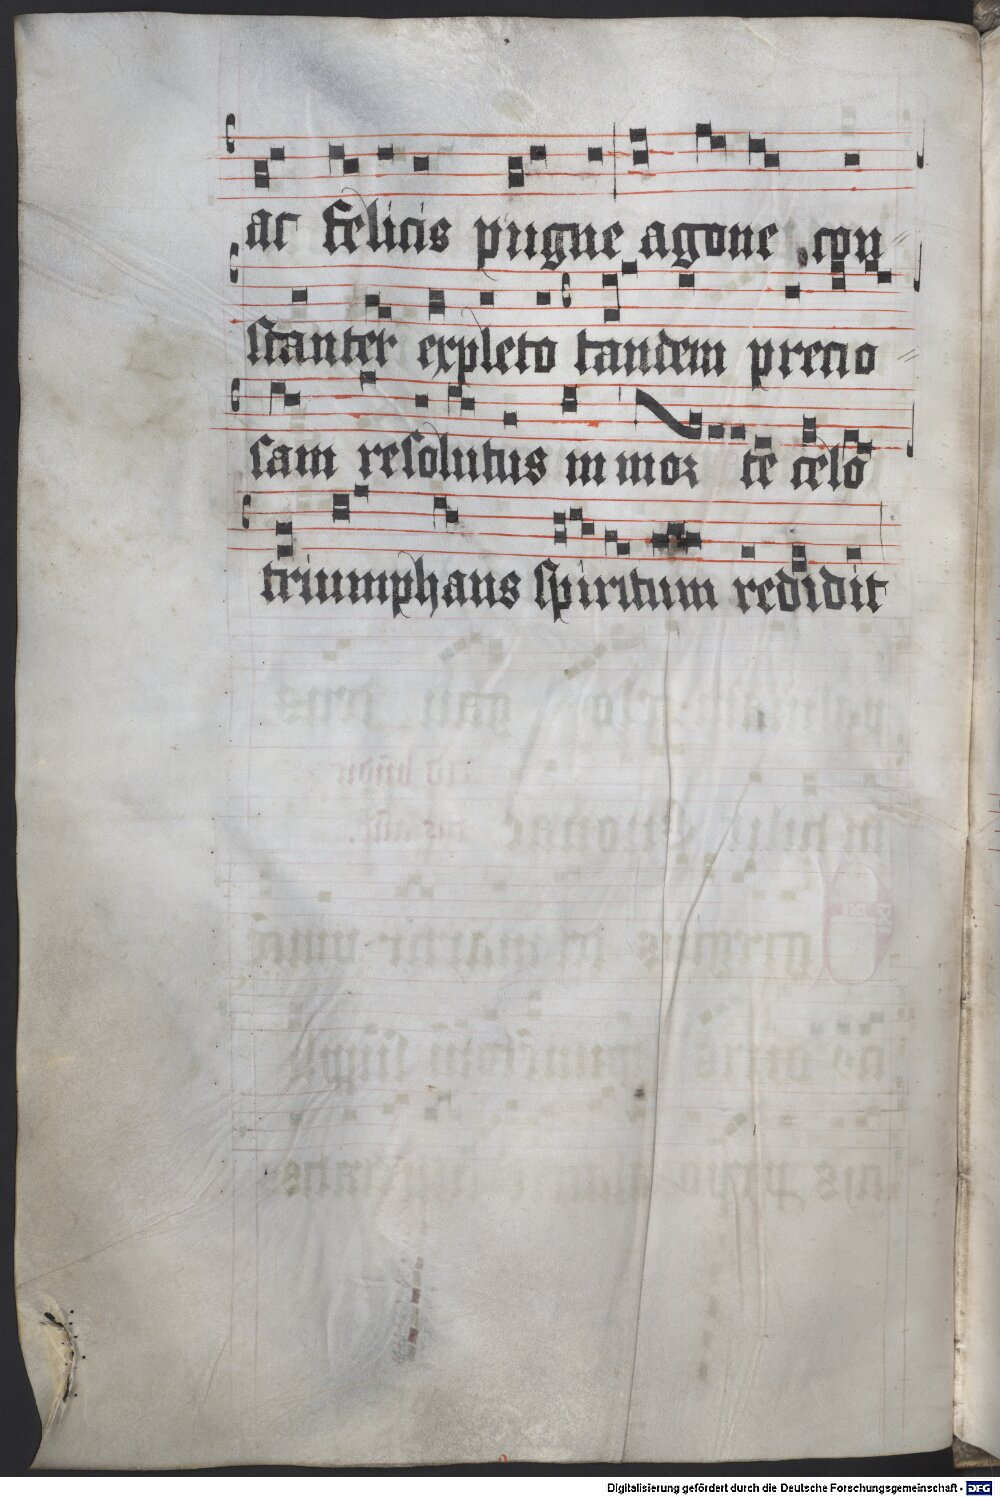 ac felicis pugne agone con
stanter expleto tandem precio
sam resolutus in mor te celo
triumphans spiritum redidit
Digitalisierung gefördert durch die Deutsche Forschungsgemeinschaft - DFG